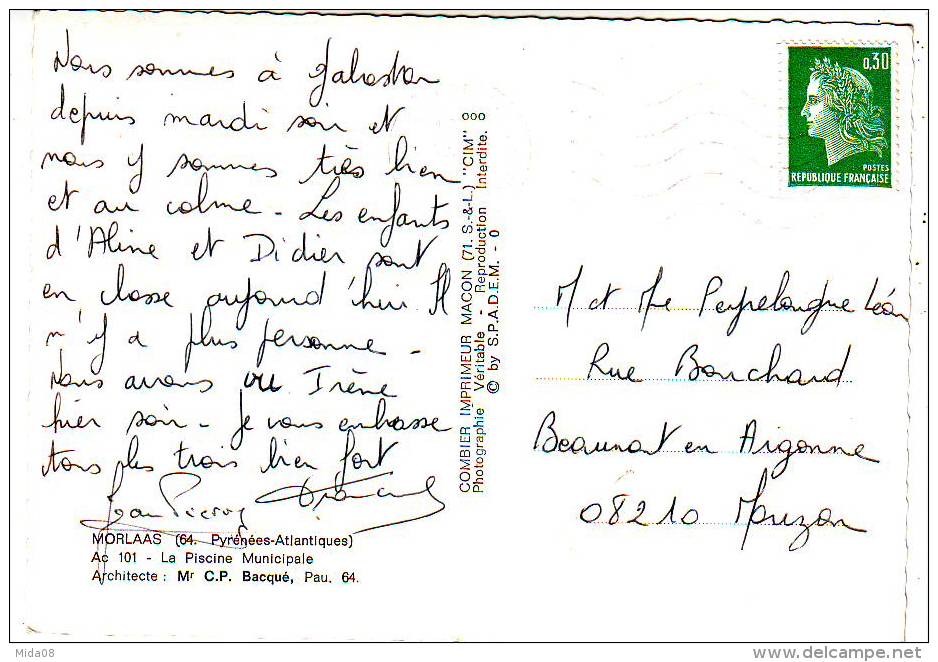 Nous sommes à Gabaston
depuis mardi soir et
nous y sommes très bien
et au calme - Les enfants
d'Aline et Didier sont
en classe aujourd'hui Il
n'y a plus personne -
Nous avons vu Irène
hier soir - Je vous embrasse
tous les trois bien fort
Jean Pierre
MORLAAS (64. Pyrénées-Atlantiques)
Ac 101 - La Piscine Municipale
Architecte : Mr C.P. Bacqué, Pau. 64.
COMBIER IMPRIMEUR MACON (71. S.-&-L.) "CIM" ooo
Photographie Véritable - Reproduction Interdite.
© by S.P.A.D.E.M. - 0
0,30
POSTES
REPUBLIQUE FRANÇAISE
M et Me Peyrelongue Léon
Rue Bouchard
Beaumont en Argonne
08210 Mouzon
Mida08
www.delcampe.net